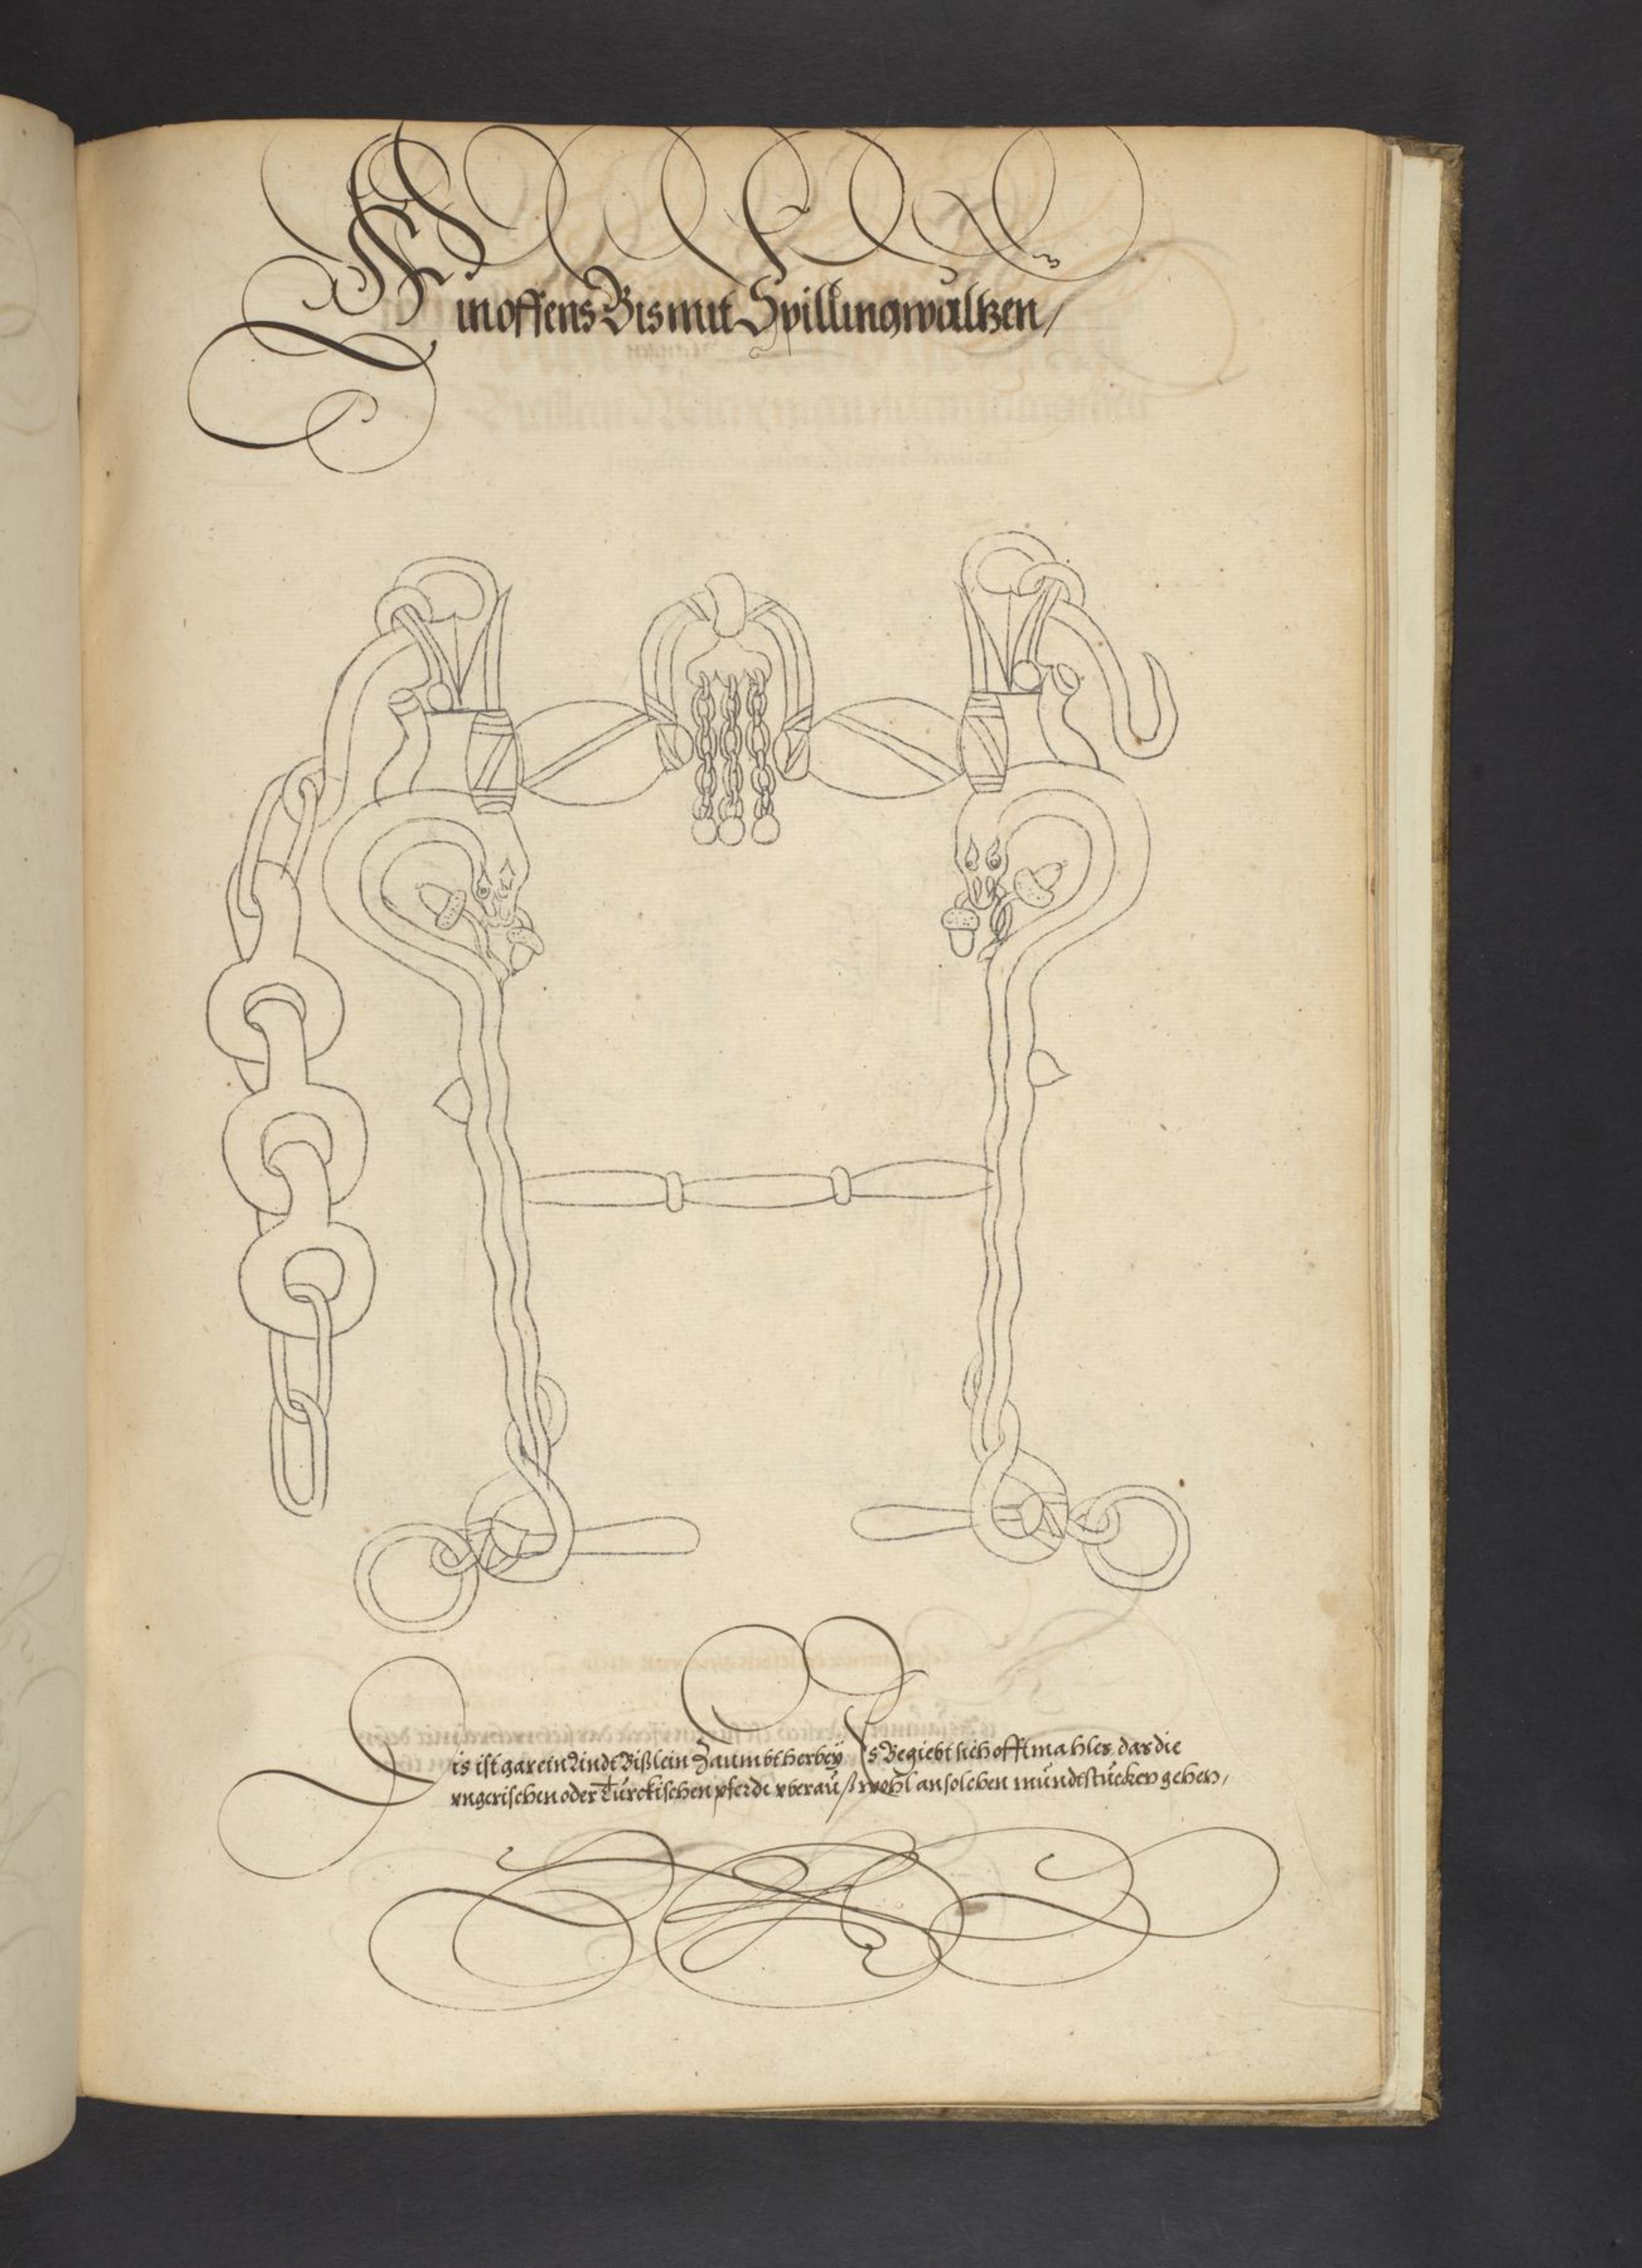 Ein offens Bis mit Spillingwaltzen/
Dis ist gar ein Lindt Bißlein Zaumbt herbey Es Begiebt sich offtmahles das die
vngerischen oder Türckischen pferde vberauß wohl an solchen mündtstücken gehen,